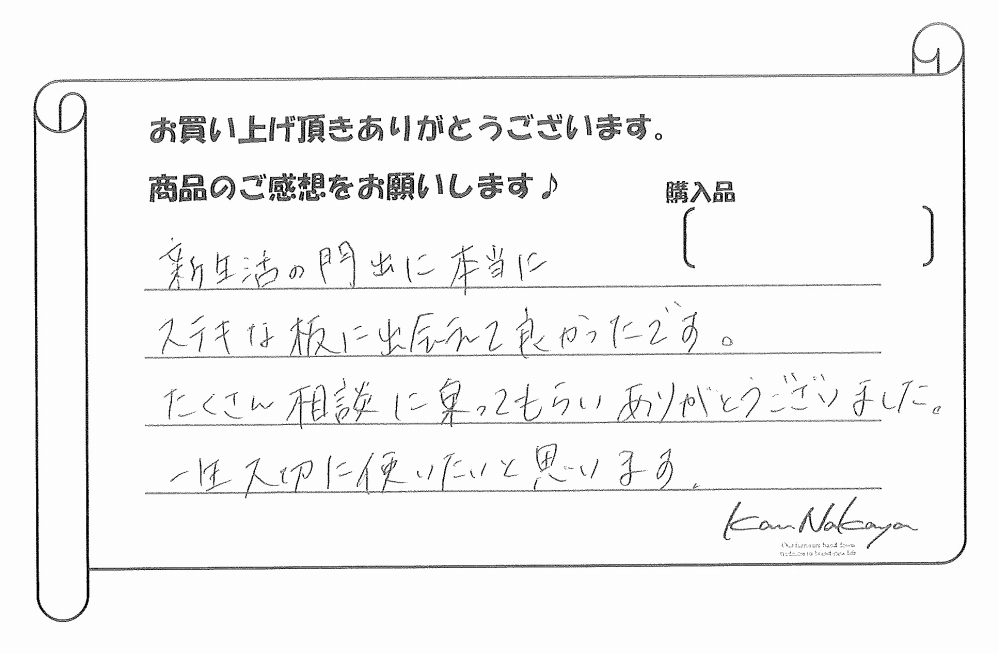 お買い上げ頂きありがとうございます。
商品のご感想をお願いします♪
購入品
新生活の門出に本当に
ステキな板に出会えて良かったです。
たくさん相談に乗ってもらいありがとうございました。
一生大切に使いたいと思います。
Kan Nakaya
Our furniture hand down